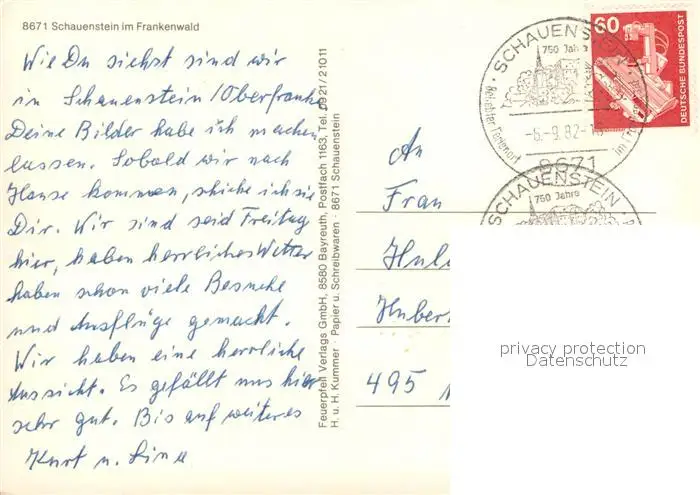 8671 Schauenstein im Frankenwald
Wie Du siehst sind wir
in Schauenstein/Oberfranke
Deine Bilder habe ich machen
lassen. Sobald wir nach
Hause kommen, schicke ich sie
Dir. Wir sind seid Freitag
hier, haben herrliches Wetter
haben schon viele Besuche
und Ausflüge gemacht.
Wir haben eine herrliche
Aussicht. Es gefällt uns hier
sehr gut. Bis auf weiteres
Kurt u. Lina
Feuerpfeil Verlags GmbH, 8580 Bayreuth, Postfach 1163, Tel. 0921/21011
H. u. H. Kummer · Papier u. Schreibwaren · 8671 Schauenstein
SCHAUENSTEIN
750 Jahre
Beliebter Ferienort
im
-6.-9.82-
8671
SCHAUENSTEIN
750 Jahre
60
DEUTSCHE BUNDESPOST
An
Frau
Hube
495
privacy protection
Datenschutz